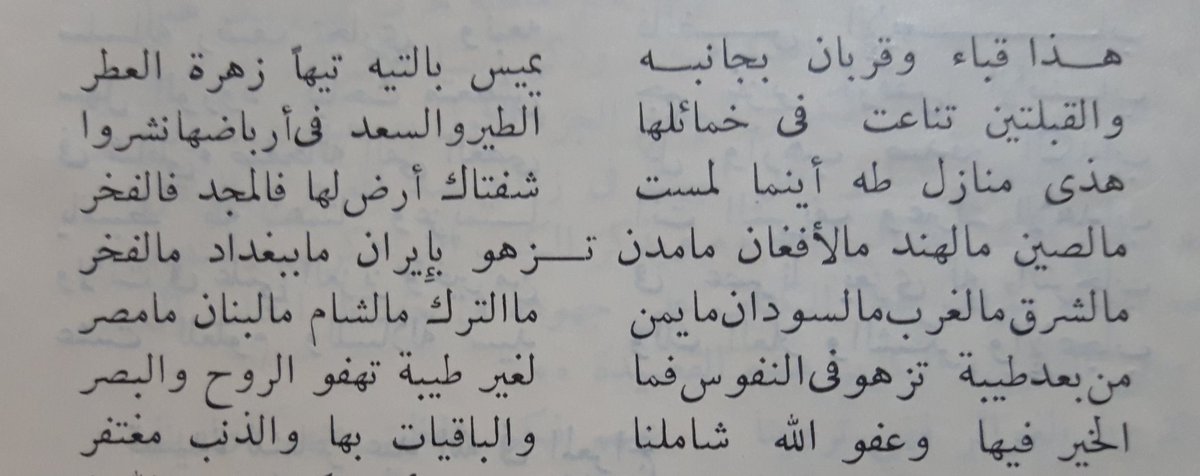 هذا قباء وقربان بجانبه يميس بالتيه تيهاً زهرة العطر
والقبلتين تناعت فى خمائلها الطير والسعد فى أرباضها نشروا
هذى منازل طه أينما لمست شفتاك أرض لها فالمجد فالفخر
مالصين مالهند مالأفغان مامدن تزهو بإيران مابيغداد مالفخر
مالشرق مالغرب مالسودان مايمن ماالترك مالشام مالبنان مامصر
من بعد طيبة تزهو فى النفوس فما لغير طيبة تهفو الروح والبصر
الخير فيها وعفو الله شاملنا والباقيات بها والذنب مغتفر